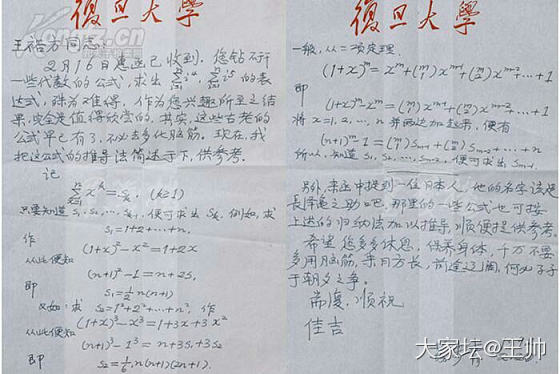 復旦大學
王 方同志:
2月16日惠函已收到,您钻研
一些代数的公式,求出 的表
达式,殊为难得,作为您兴趣所至之结
果,完全是值得欣赏的,其实,这些古老的
公式早已有了,不必去多化脑筋。现在,我
把这公式的推导法简述于下,供参考。
记
∑x^k = S_k, (k≥1)
只要知道 S₁, S₂, …, 便可求出 S_k. 例如,求
S₁=1+2+…+n.
作
(1+x)²-x²=1+2x
从此便知
(n+1)²-1=n+2S₁
即
S₁=½n(n+1)
又如,求 S₂=1²+2²+…+n²,作
(1+x)³-x³=1+3x+3x²
从此便知
(n+1)³-1³=n+3S₁+3S₂
即
S₂=⅙n(n+1)(2n+1).
復旦大學
一般,从二项定理,
(1+x)^m=x^m+(m 1)x^{m-1}+(m 2)x^{m-2}+…+1
即
(1+x)^m-x^m=(m 1)x^{m-1}+(m 2)x^{m-2}+…+1
将 x=1,2,…,n 并两边加起来,便有
(n+1)^m-1=(m 1)S_{m-1}+(m 2)S_{m-2}+…+n
所以,知道 S₁, S₂, …, S_{m-2},便可求出 S_{m-1}.
另外,来函中提到一位日本人,他的名字该是
长泽龟之助吧,那里的一些公式也可按
上述的归纳法加以推导,顺便提供参考。
希望您多多休息,保养身体,千万不要
多用脑筋,来日方长,前途辽阔,何必孑孑
于朝夕之争。
耑复,顺祝
佳吉
大家坛@王帅